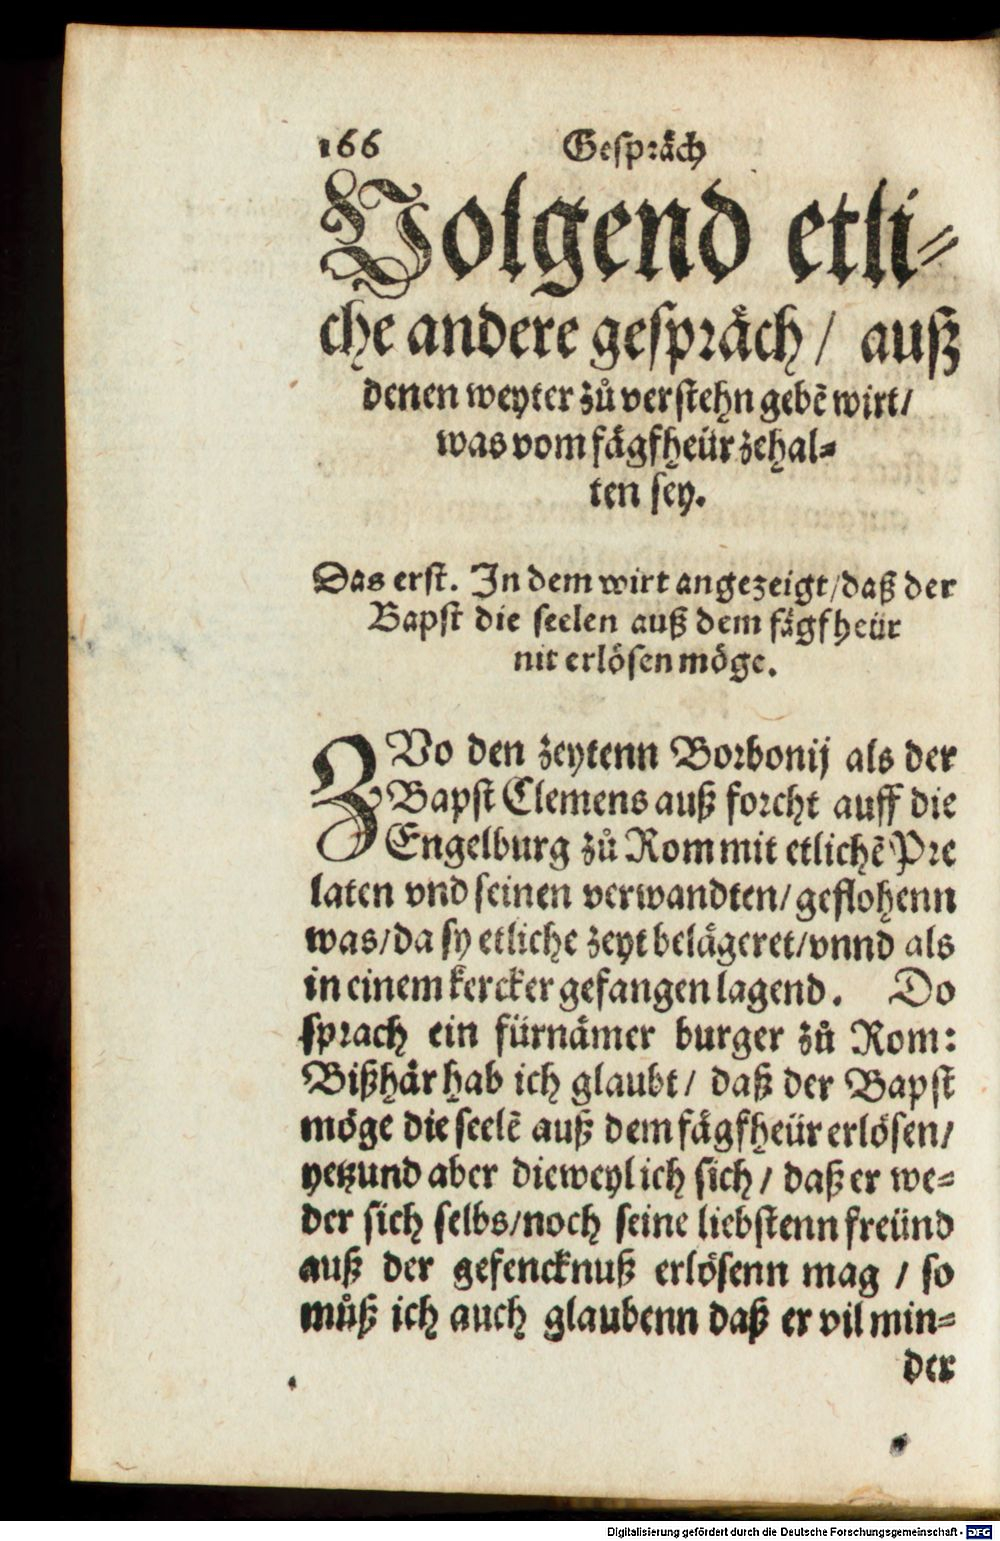 166 Gespräch
Volgend etli-
che andere gespräch / auß
denen weyter zů verstehn gebẽ wirt/
was vom fägfheür zehal-
ten sey.
Das erst. In dem wirt angezeigt/daß der
Bapst die seelen auß dem fägfheür
nit erlösen möge.
ZVo den zeytenn Borbonij als der
Bapst Clemens auß forcht auff die
Engelburg zů Rom mit etlichẽ Pre
laten vnd seinen verwandten/geflohenn
was/da sy etliche zeyt belägeret/vnnd als
in einem kercker gefangen lagend. Do
sprach ein fürnämer burger zů Rom:
Bißhär hab ich glaubt/ daß der Bapst
möge die seelẽ auß dem fägfheür erlösen/
yetzund aber dieweyl ich sich / daß er we-
der sich selbs/noch seine liebstenn freünd
auß der gefencknuß erlösenn mag / so
můß ich auch glaubenn daß er vil min-
der
Digitalisierung gefördert durch die Deutsche Forschungsgemeinschaft - DFG